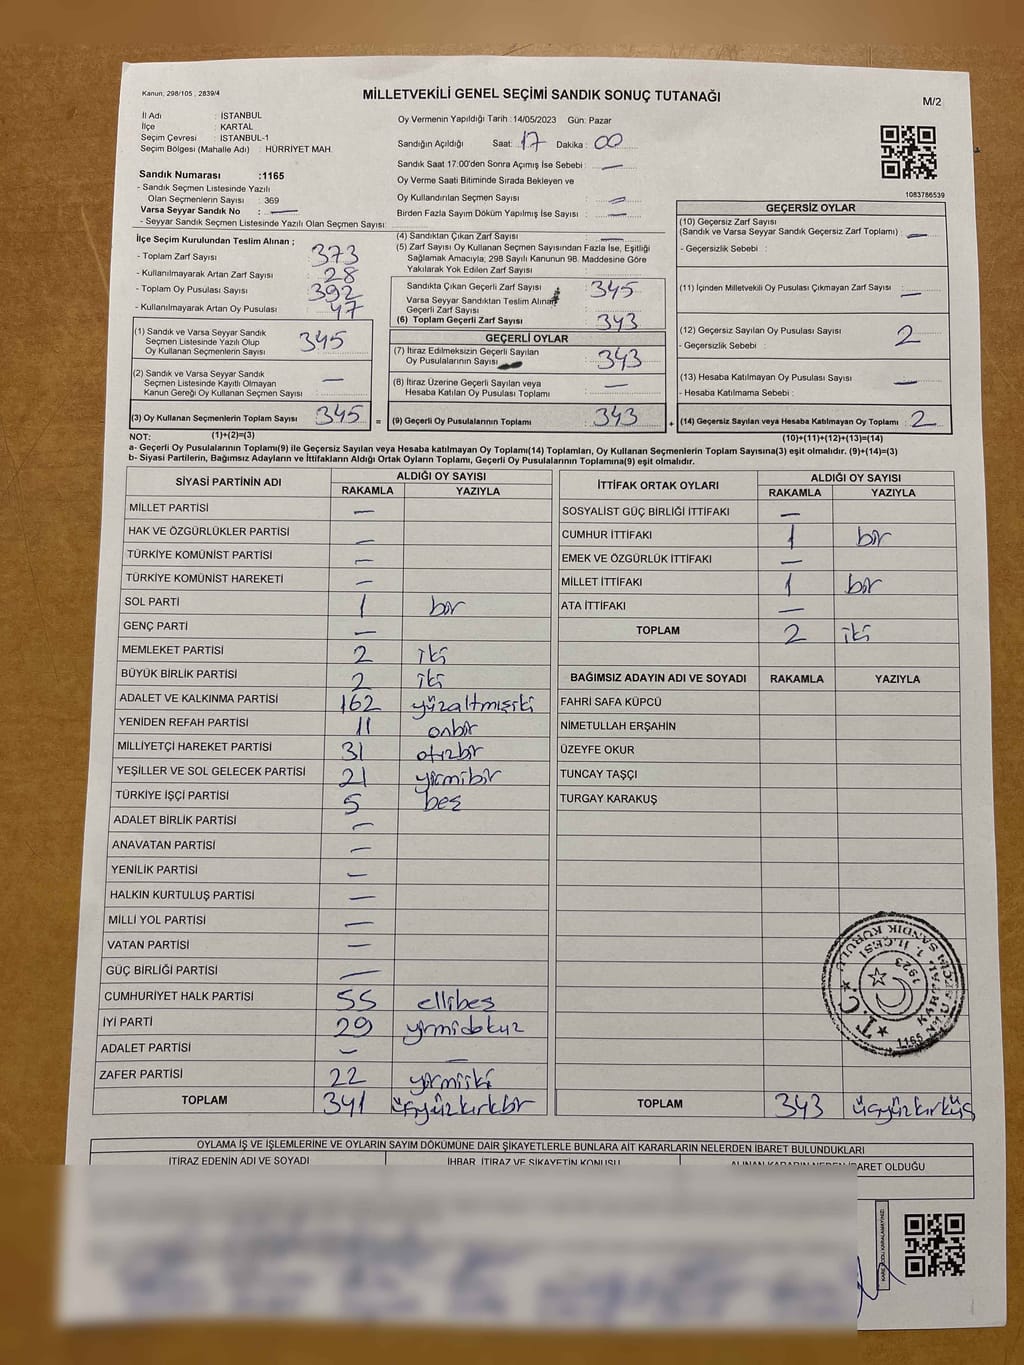 Kanun, 298/105 , 2839/4
MİLLETVEKİLİ GENEL SEÇİMİ SANDIK SONUÇ TUTANAĞI
M/2
İl Adı : İSTANBUL
İlçe : KARTAL
Seçim Çevresi : İSTANBUL-1
Seçim Bölgesi (Mahalle Adı) : HÜRRİYET MAH.
Sandık Numarası :1165
- Sandık Seçmen Listesinde Yazılı
Olan Seçmenlerin Sayısı : 369
Varsa Seyyar Sandık No : —
- Seyyar Sandık Seçmen Listesinde Yazılı Olan Seçmen Sayısı:
Oy Vermenin Yapıldığı Tarih :14/05/2023 Gün: Pazar
Sandığın Açıldığı Saat: 17 Dakika : 00
Sandık Saat 17:00'den Sonra Açımış İse Sebebi : —
Oy Verme Saati Bitiminde Sırada Bekleyen ve
Oy Kullandırılan Seçmen Sayısı : —
Birden Fazla Sayım Döküm Yapılmış İse Sayısı : —
1083786539
İlçe Seçim Kurulundan Teslim Alınan ;
- Toplam Zarf Sayısı : 373
- Kullanılmayarak Artan Zarf Sayısı : 28
- Toplam Oy Pusulası Sayısı : 392
- Kullanılmayarak Artan Oy Pusulası : 47
(1) Sandık ve Varsa Seyyar Sandık
Seçmen Listesinde Yazılı Olup
Oy Kullanan Seçmenlerin Sayısı : 345
(2) Sandık ve Varsa Seyyar Sandık
Seçmen Listesinde Kayıtlı Olmayan
Kanun Gereği Oy Kullanan Seçmen Sayısı : —
(3) Oy Kullanan Seçmenlerin Toplam Sayısı : 345
(1)+(2)=(3)
(4) Sandıktan Çıkan Zarf Sayısı : —
(5) Zarf Sayısı Oy Kullanan Seçmen Sayısından Fazla İse, Eşitliği
Sağlamak Amacıyla; 298 Sayılı Kanunun 98. Maddesine Göre
Yakılarak Yok Edilen Zarf Sayısı :
Sandıkta Çıkan Geçerli Zarf Sayısı : 345
Varsa Seyyar Sandıktan Teslim Alınan
Geçerli Zarf Sayısı :
(6) Toplam Geçerli Zarf Sayısı : 343
GEÇERLİ OYLAR
(7) İtiraz Edilmeksizin Geçerli Sayılan
Oy Pusulalarının Sayısı 343
(8) İtiraz Üzerine Geçerli Sayılan veya
Hesaba Katılan Oy Pusulası Toplamı : —
= (9) Geçerli Oy Pusulalarının Toplamı : 343
GEÇERSİZ OYLAR
(10) Geçersiz Zarf Sayısı
(Sandık ve Varsa Seyyar Sandık Geçersiz Zarf Toplamı) : —
- Geçersizlik Sebebi :
(11) İçinden Milletvekili Oy Pusulası Çıkmayan Zarf Sayısı : —
(12) Geçersiz Sayılan Oy Pusulası Sayısı : 2
- Geçersizlik Sebebi :
(13) Hesaba Katılmayan Oy Pusulası Sayısı : —
- Hesaba Katılmama Sebebi :
+ (14) Geçersiz Sayılan veya Hesaba Katılmayan Oy Toplamı : 2
(10)+(11)+(12)+(13)=(14)
NOT:
a- Geçerli Oy Pusulalarının Toplamı(9) ile Geçersiz Sayılan veya Hesaba katılmayan Oy Toplamı(14) Toplamları, Oy Kullanan Seçmenlerin Toplam Sayısına(3) eşit olmalıdır. (9)+(14)=(3)
b- Siyasi Partilerin, Bağımsız Adayların ve İttifakların Aldığı Oy Toplamı, Geçerli Oy Pusulalarının Toplamına(9) eşit olmalıdır.
SİYASİ PARTİNİN ADI ALDIĞI OY SAYISI
RAKAMLA YAZIYLA
MİLLET PARTİSİ —
HAK VE ÖZGÜRLÜKLER PARTİSİ —
TÜRKİYE KOMÜNİST PARTİSİ —
TÜRKİYE KOMÜNİST HAREKETİ —
SOL PARTİ 1 bir
GENÇ PARTİ —
MEMLEKET PARTİSİ 2 iki
BÜYÜK BİRLİK PARTİSİ 2 iki
ADALET VE KALKINMA PARTİSİ 162 yüzaltmışiki
YENİDEN REFAH PARTİSİ 11 onbir
MİLLİYETÇİ HAREKET PARTİSİ 31 otuzbir
YEŞİLLER VE SOL GELECEK PARTİSİ 21 yirmibir
TÜRKİYE İŞÇİ PARTİSİ 5 beş
ADALET BİRLİK PARTİSİ —
ANAVATAN PARTİSİ —
YENİLİK PARTİSİ —
HALKIN KURTULUŞ PARTİSİ —
MİLLİ YOL PARTİSİ —
VATAN PARTİSİ —
GÜÇ BİRLİĞİ PARTİSİ —
CUMHURİYET HALK PARTİSİ 55 ellibeş
İYİ PARTİ 29 yirmidokuz
ADALET PARTİSİ — —
ZAFER PARTİSİ 22 yirmiiki
TOPLAM 341 üçyüzkırkbir
İTTİFAK ORTAK OYLARI ALDIĞI OY SAYISI
RAKAMLA YAZIYLA
SOSYALİST GÜÇ BİRLİĞİ İTTİFAKI —
CUMHUR İTTİFAKI 1 bir
EMEK VE ÖZGÜRLÜK İTTİFAKI —
MİLLET İTTİFAKI 1 bir
ATA İTTİFAKI —
TOPLAM 2 iki
BAĞIMSIZ ADAYIN ADI VE SOYADI RAKAMLA YAZIYLA
FAHRİ SAFA KÜPCÜ
NİMETULLAH ERŞAHİN
ÜZEYFE OKUR
TUNCAY TAŞÇI
TURGAY KARAKUŞ
T.C.
KARTAL 1. İLÇESİ
1923
1165 NOLU SEÇİM SANDIK KURULU
TOPLAM 343 üçyüzkırküç
OYLAMA İŞ VE İŞLEMLERİNE VE OYLARIN SAYIM DÖKÜMÜNE DAİR ŞİKAYETLERLE BUNLARA AİT KARARLARIN NELERDEN İBARET BULUNDUKLARI
İTİRAZ EDENİN ADI VE SOYADI İHBAR, İTİRAZ VE ŞİKAYETİN KONUSU ALINAN KARARIN NEDEN İBARET OLDUĞU
KARE KODU KARALAMAYINIZ!